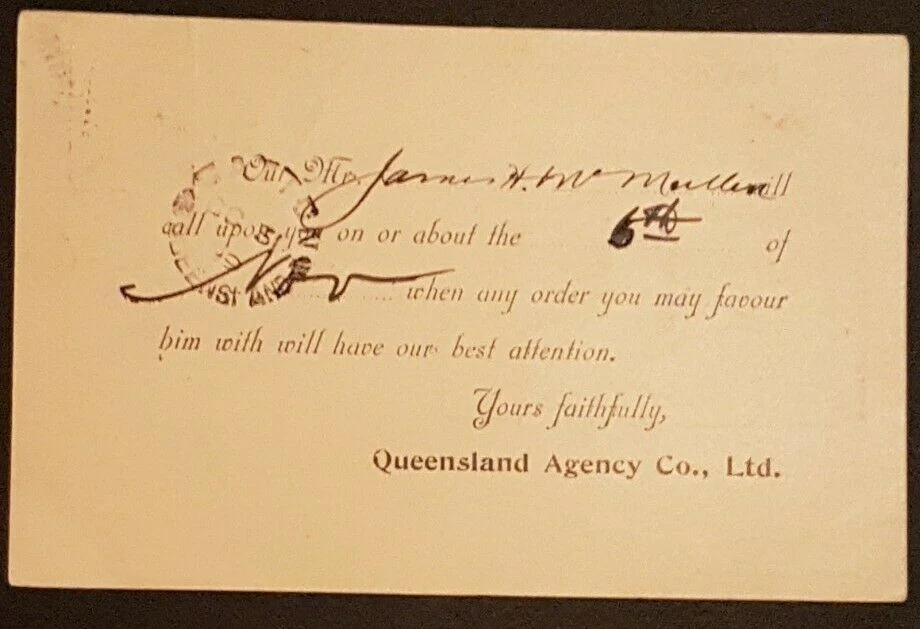 Our Mr. James H. McMullen will
call upon you on or about the 6th of
Nov when any order you may favour
him with will have our best attention.
Yours faithfully,
Queensland Agency Co., Ltd.